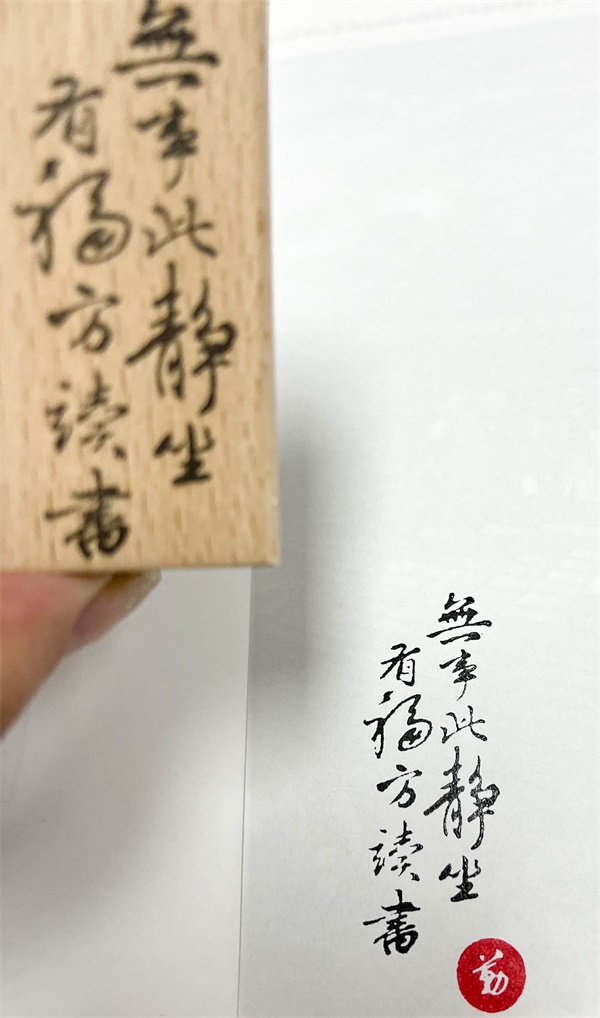 無事此静坐
有福方讀書
無事此静坐
有福方讀書
勤